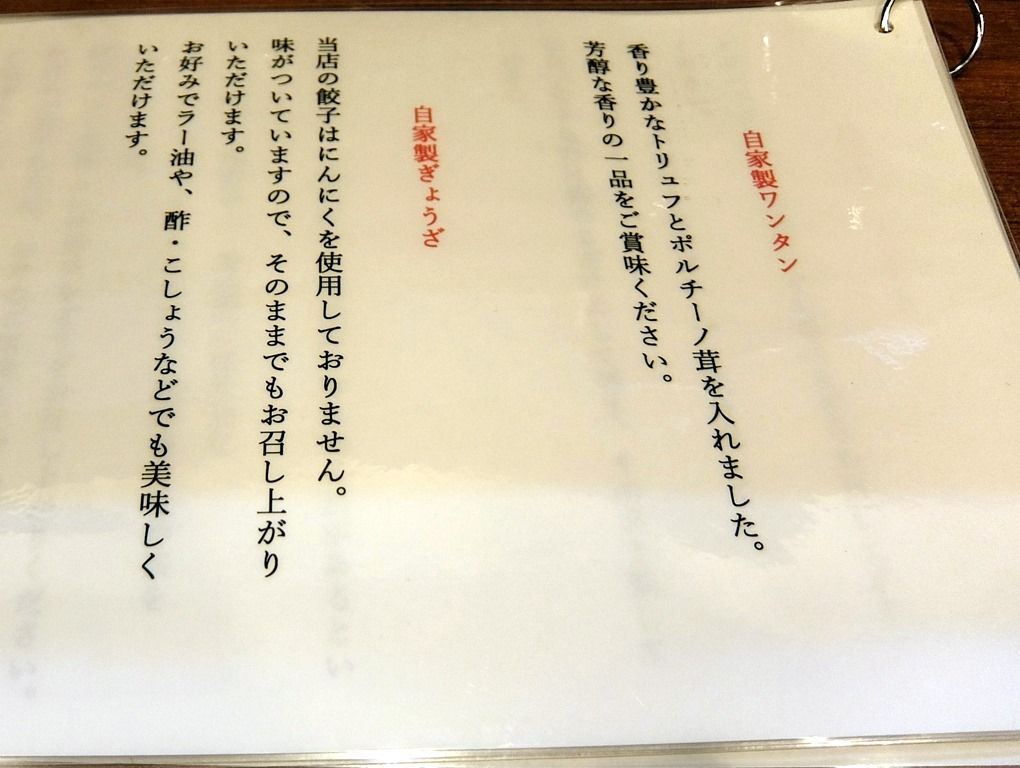 自家製ワンタン
香り豊かなトリュフとポルチーノ茸を入れました。
芳醇な香りの一品をご賞味ください。
自家製ぎょうざ
当店の餃子はにんにくを使用しておりません。
味がついていますので、そのままでもお召し上がり
いただけます。
お好みでラー油や、酢・こしょうなどでも美味しく
いただけます。